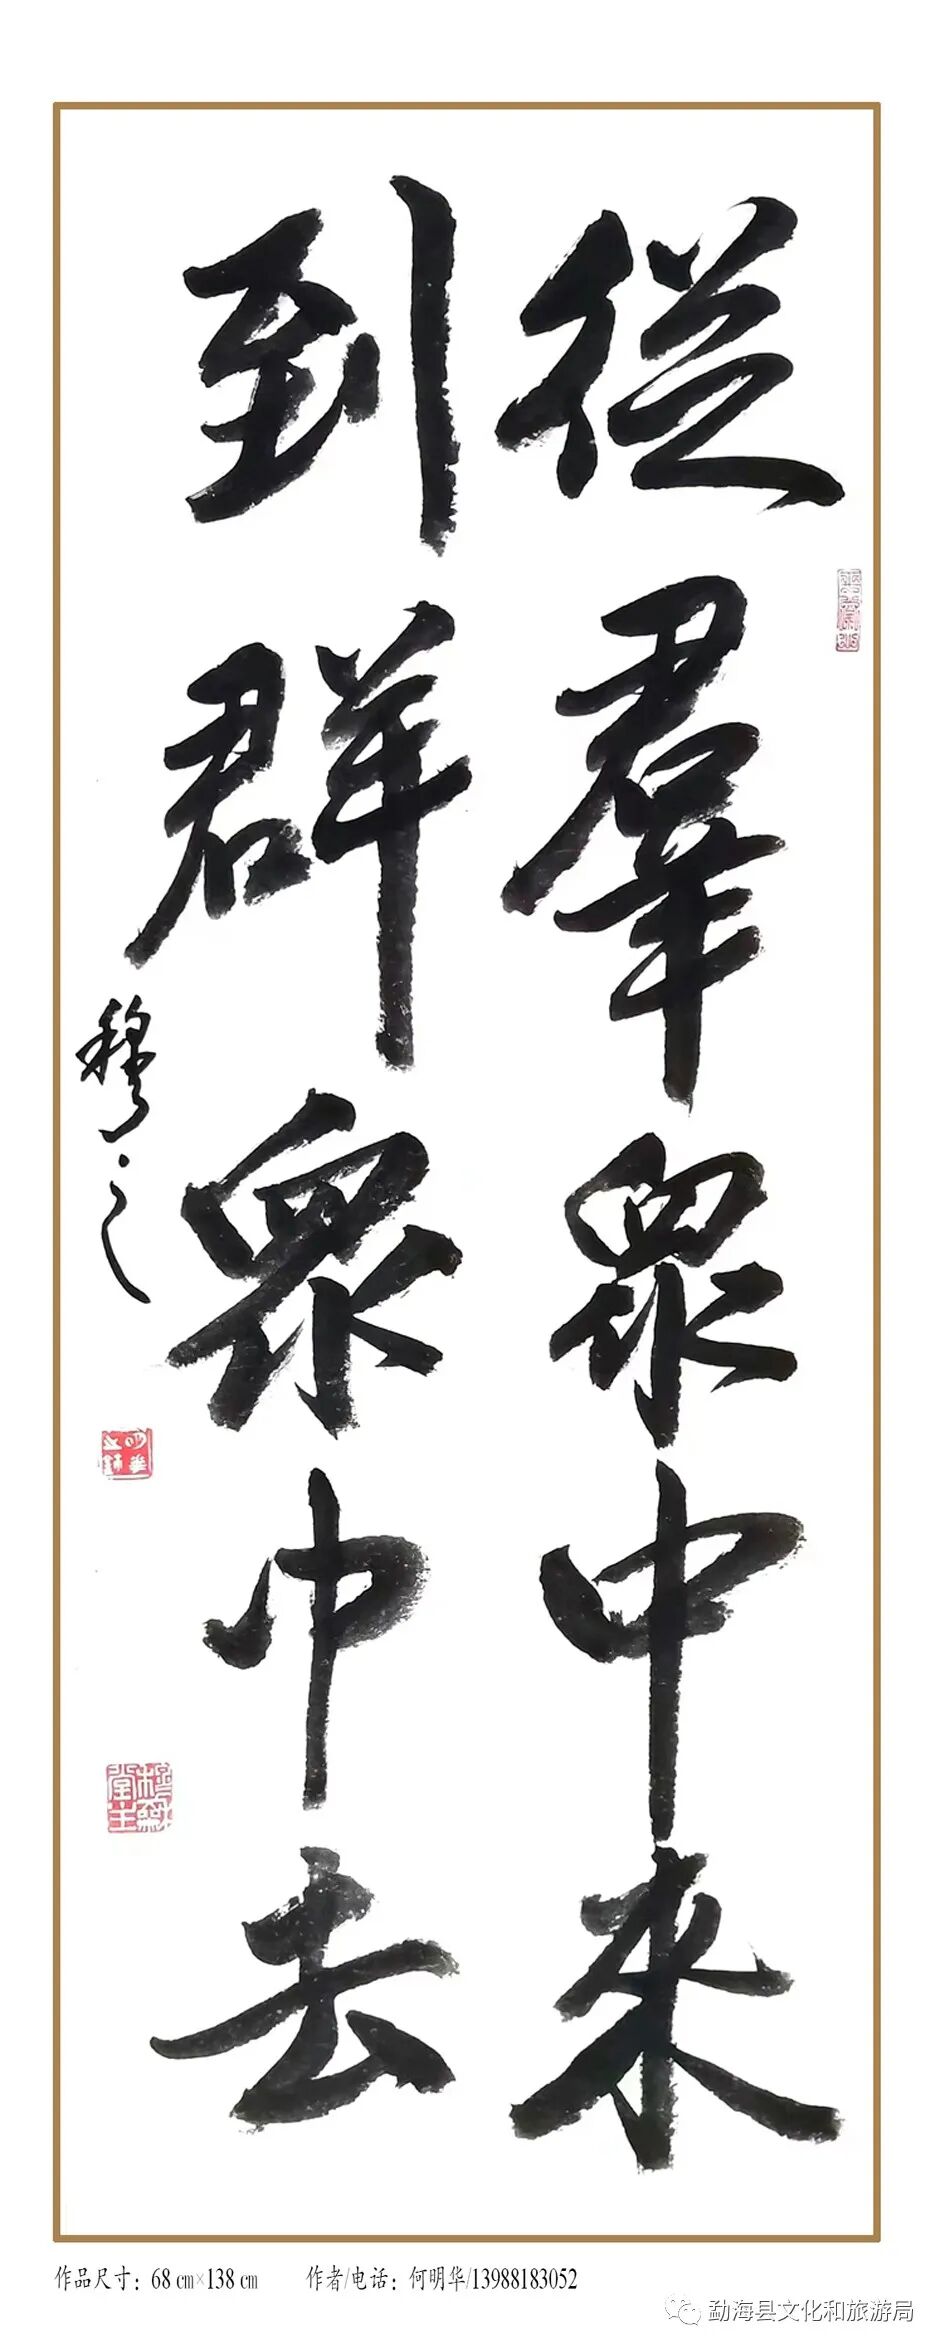 從羣眾中來
到群眾中去
穆之
作品尺寸：68㎝×138㎝ 作者/电话：何明华/13988183052
勐海县文化和旅游局